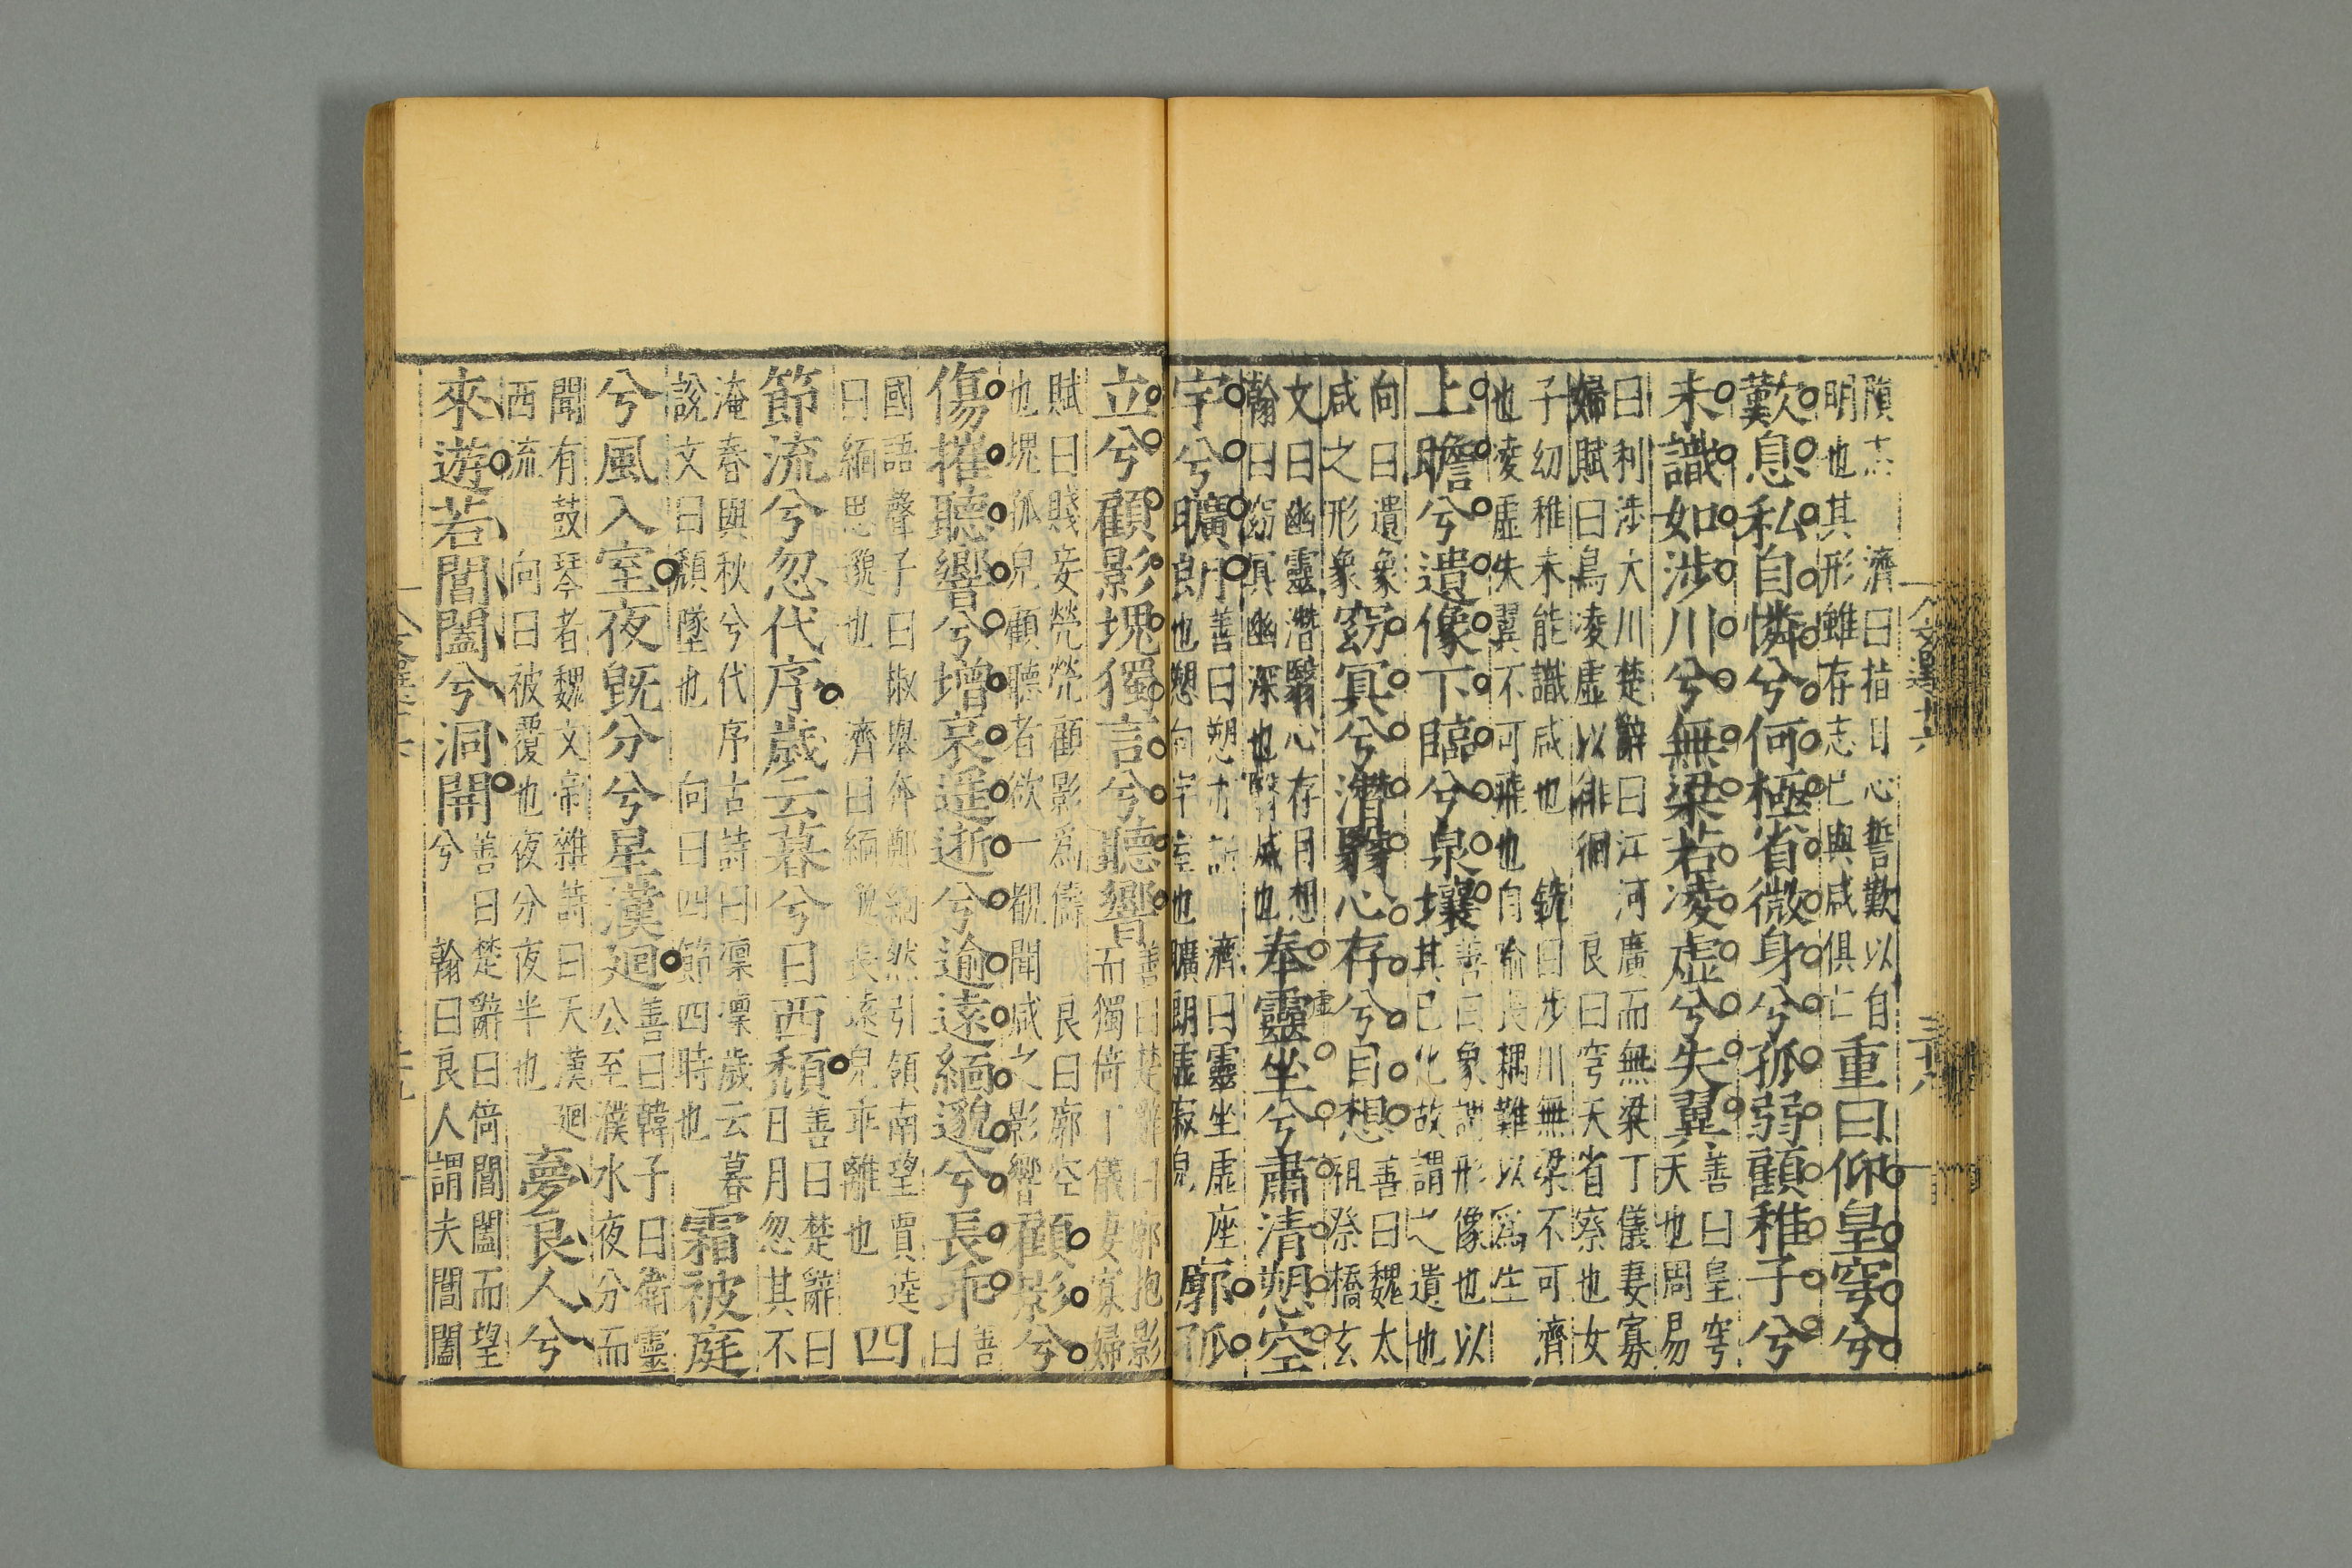 文選十六 三十八
隕志 濟曰指日心誓歎以自
明也其形雖存志已與感俱亡
重曰仰皇穹兮
歎息私自憐兮何極省微身兮孤弱顧稚子兮
未識如涉川兮無梁若凌虛兮失翼
善曰皇穹
天也周易
曰利涉大川楚辭曰江河廣而無梁丁儀妻寡
婦賦曰鳥凌虛以徘徊 良曰穹天省察也女
子幼稚未能識感也 銑曰涉川無梁不可濟
也凌虛失翼不可飛也自喻喪耦難以爲生
上瞻兮遺像下臨兮泉壤
善曰象謂形像也以
其已化故謂之遺也
向曰遺象
感之形象
窈冥兮潛翳心存兮目想
善曰魏太
祖祭橋玄
文曰幽靈潛翳心存目想
翰曰窈冥幽深也翳滅也
奉靈坐兮肅清愬空
虛
宇兮曠朗
善曰愬亦訴 濟曰靈坐虛座
也愬向宇屋也曠朗虛寂皃
廓孤
立兮顧影塊獨言兮聽響
善曰楚辭曰廓抱影
而獨倚丁儀妻寡婦
賦曰賤妾煢煢顧影爲儔 良曰廓空
也塊孤皃顧聽者欲一覩聞感之影響
顧影兮
傷摧聽響兮增哀遥逝兮逾遠緬邈兮長乖
善
曰
國語聲子曰椒舉奔鄭緬然引領南望賈逵
曰緬思邈也 濟曰緬邈長遠皃乖離也
四
節流兮忽代序歲云暮兮日西頹
善曰楚辭曰
日月忽其不
淹春與秋兮代序古詩曰凛凛歲云暮
說文曰頹墜也 向曰四節四時也
霜被庭
兮風入室夜旣分兮星漢廻
善曰韓子曰衛靈
公至濮水夜分而
聞有鼓琴者魏文帝雜詩曰天漢廻
西流 向曰被覆也夜分夜半也
夢良人兮
來遊若閶闔兮洞開
善曰楚辭曰倚閶闔而望
兮 翰曰良人謂夫閶闔